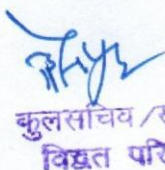 कुलसचिव /स
विद्वत परि